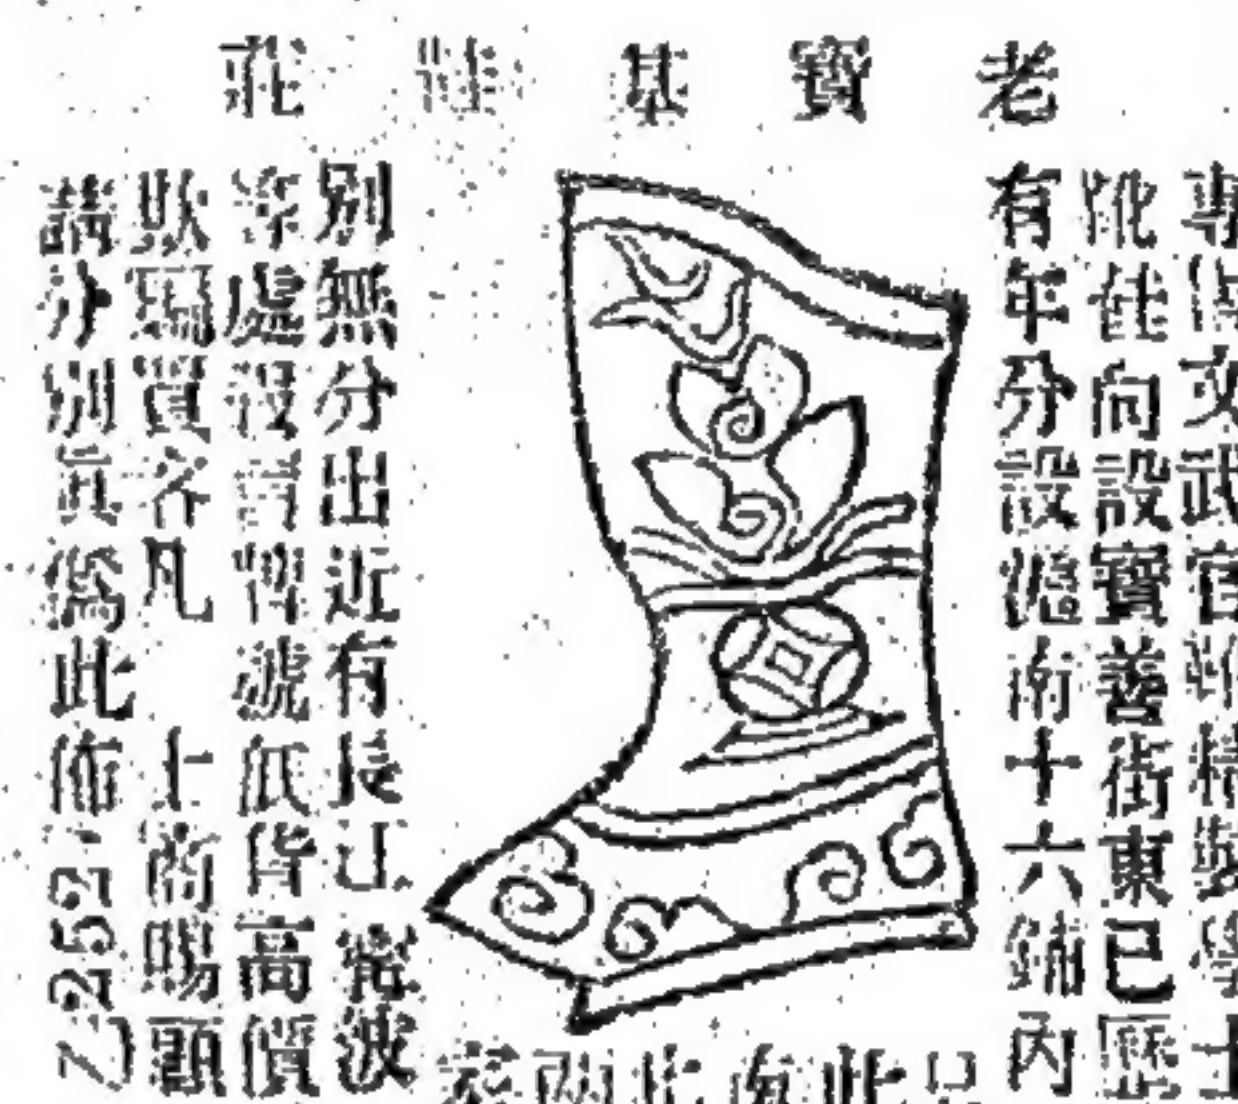 老寶基鞋莊
專做文武官靴精製學士
靴鞋向設寶善街東已歷
有年分設滬南十六鋪內
只此兩
別無分出近有長江甯波
等處設冒牌號低貨高價
欺騙買客凡 士商賜顧
請分別真偽此佈 22527